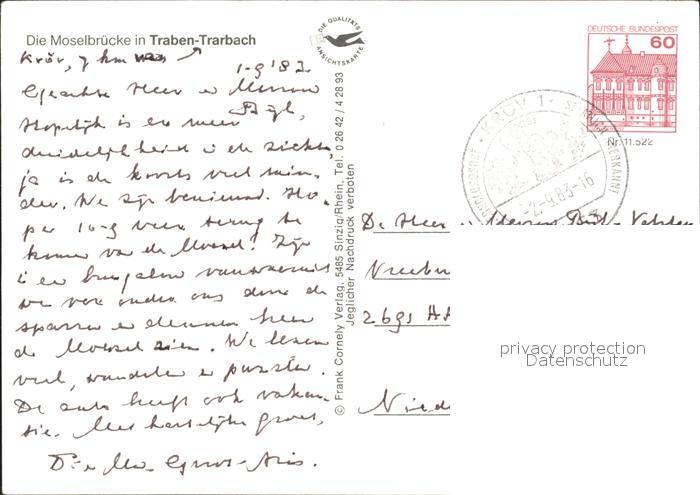 Die Moselbrücke in Traben-Trarbach
Kröv, 7 km
1-9 '83
Geachte Heer en Mevrouw
Hopelijk is er meer
duidelijkheid in de ziekte,
ja is de koorts wat min-
der. We zijn benieuwd. Ho-
pen 10-9 weer terug te
komen van de Moezel! Zijn
in een bungalow vanwaaruit
we ver onder ons door de
sparren en dennen heen
de Moezel zien. We lezen
veel, wandelen en puzzelen.
De auto heeft ook vakan-
tie. Met hartelijke groet,
DIE QUALITÄTS
ANSICHTSKARTE
© Frank Cornely Verlag, 5485 Sinzig/Rhein, Tel. 0 26 42 / 4 28 93
Jeglicher Nachdruck verboten
DEUTSCHE BUNDESPOST
60
Nr. 11.522
KRÖV 1
-2.-9.83-16
De Heer en Mevrouw
2691
privacy protection
Datenschutz